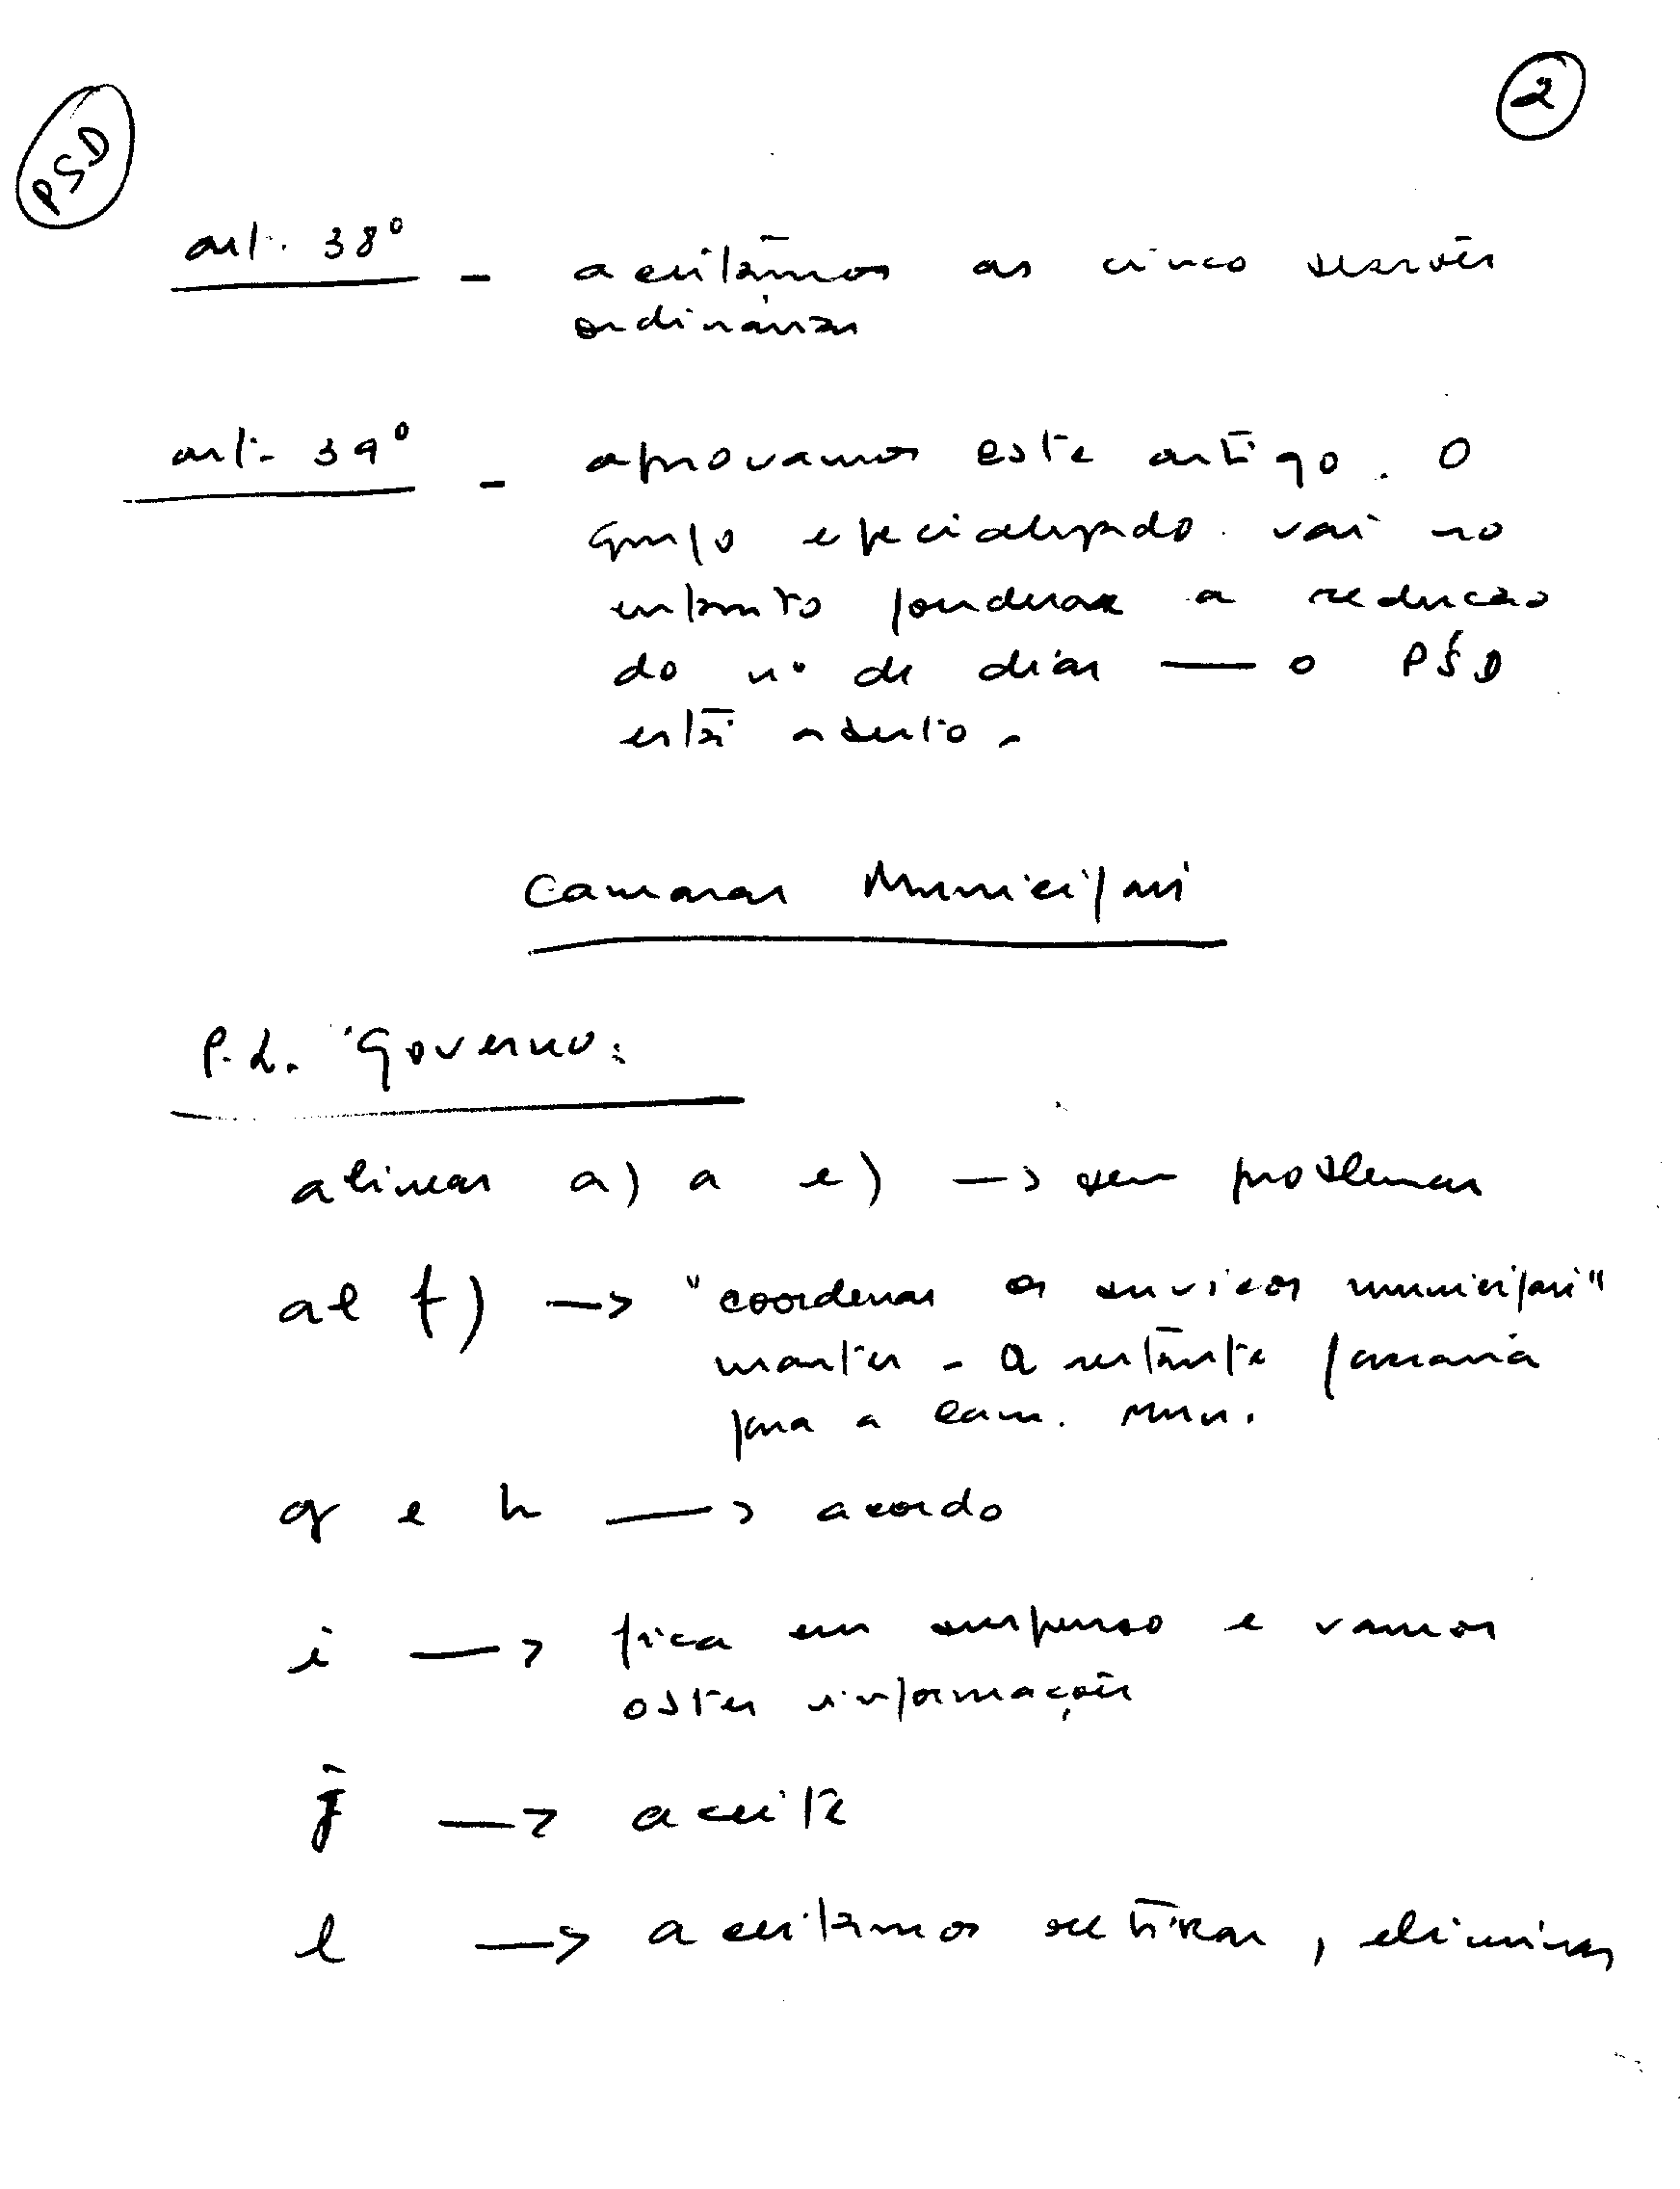 PSD
2
art. 38º - aceitâmos as cinco sessões
ordinárias
art. 39º - aprovamos este artigo. O
Grupo especializado vai no
entanto ponderar a redução
do nº de dias — o PSD
está aberto.
Camaras Municipais
P.L. Governo:
alineas a) a e) → sem problemas
al f) → "coordenar os serviços municipais"
manter - A restante passaria
para a Cam. Mun.
g e h → acordo
i → fica em suspenso e vamos
obter informações
j → aceite
l → aceitamos retirar, eliminar